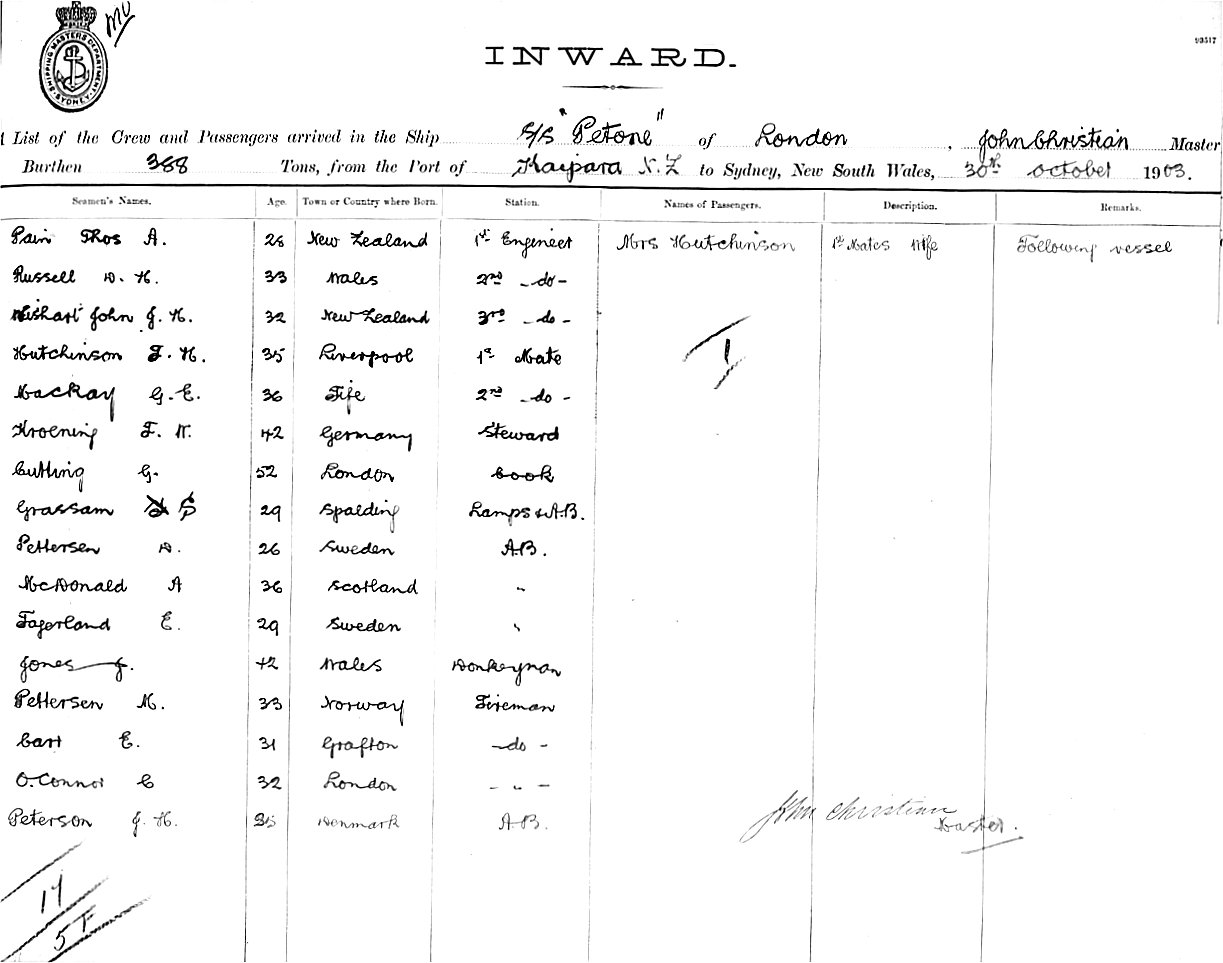 MU
SHIPPING MASTERS DEPARTMENT SYDNEY
INWARD.
93517
List of the Crew and Passengers arrived in the Ship S/S "Petone" of London, John Christian Master
Burthen 388 Tons, from the Port of Kaipara N.Z to Sydney, New South Wales, 30th October 1903.
Seamen's Names. Age. Town or Country where Born. Station. Names of Passengers. Description. Remarks.
Pain Thos A. 28 New Zealand 1st Engineer Mrs Hutchinson 1st Mates Wife Following vessel
Russell D. H. 33 Wales 2nd -do-
Wishart John J. H. 32 New Zealand 3rd -do-
Hutchinson F. H. 35 Liverpool 1st Mate
I
Mackay G. E. 36 Fife 2nd -do-
Kroening F. W. 42 Germany Steward
Cutting G. 52 London Cook
Grassam S 29 Spalding Lamps & A.B.
Pettersen D. 26 Sweden A.B.
McDonald A 36 Scotland "
Fagerland E. 29 Sweden "
Jones J. 42 Wales Donkeyman
Pettersen M. 33 Norway Fireman
Cart E. 31 Grafton -do-
O.Connor C 32 London - " -
Peterson J. H. 35 Denmark A.B.
John Christian
Master.
17
5 F